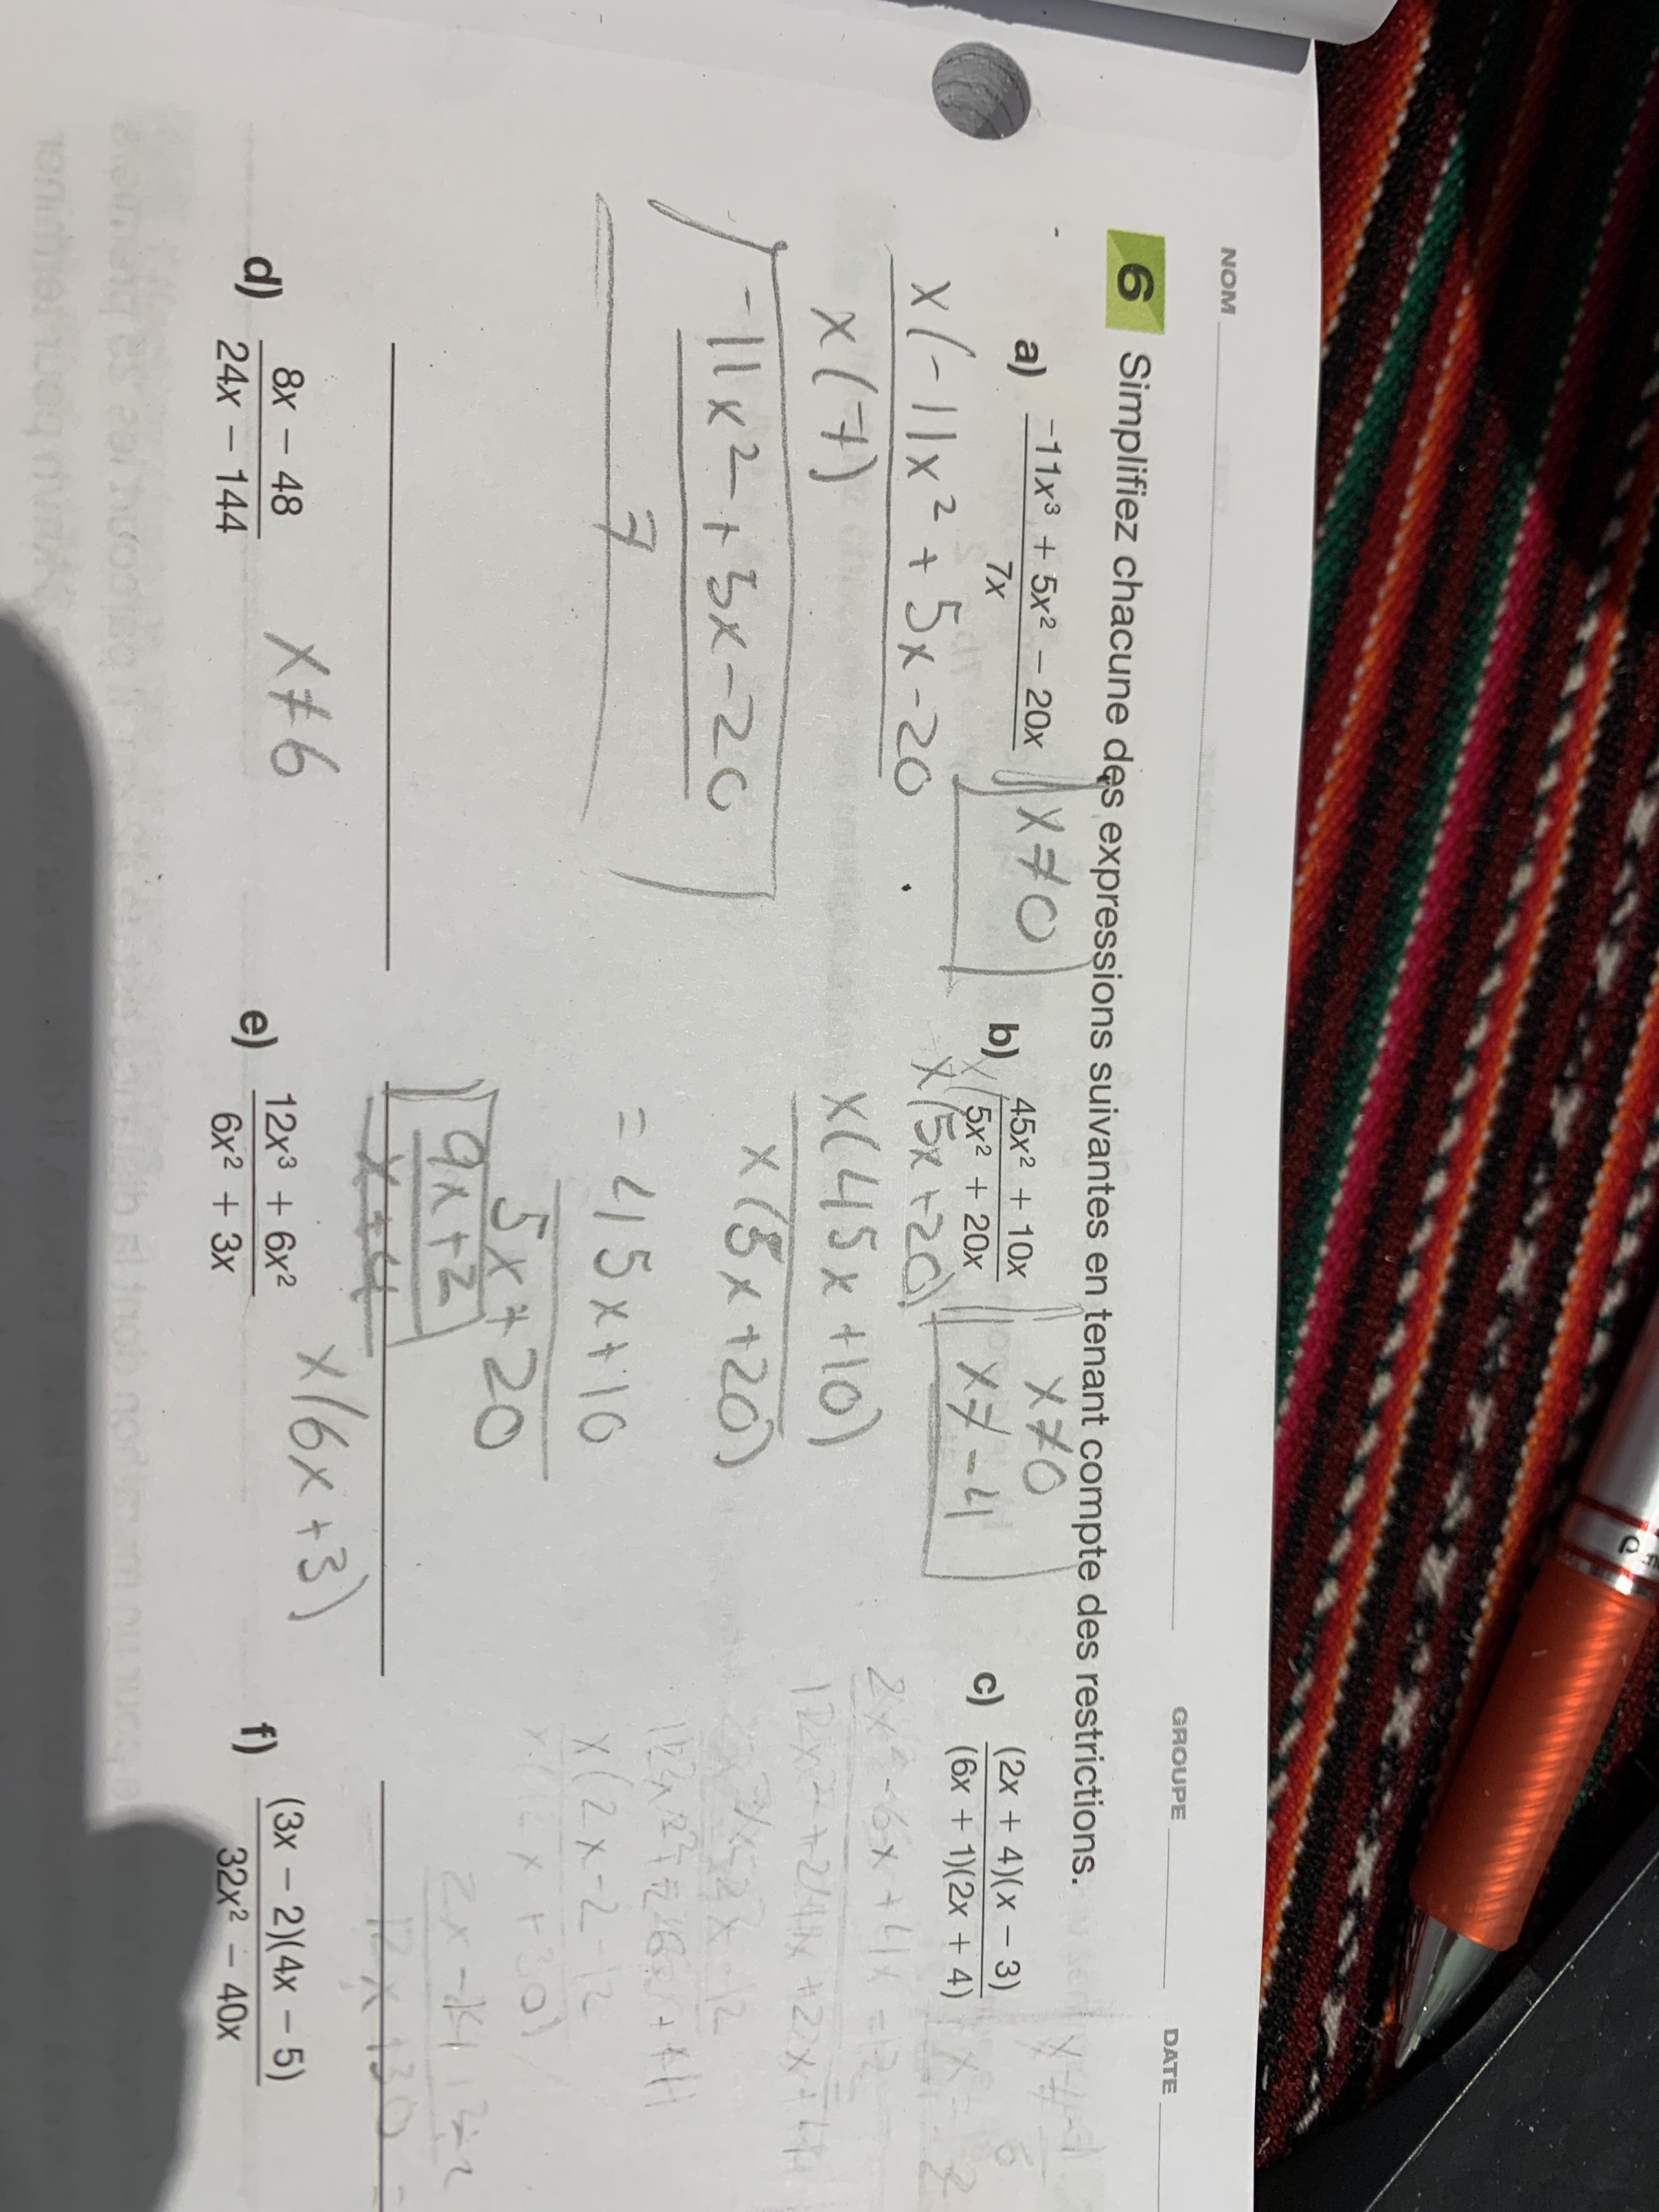 NOM GROUPE DATE
6 Simplifiez chacune des expressions suivantes en tenant compte des restrictions.
a) (-11x³ + 5x² - 20x)/(7x)
x ≠ 0
x(-11x² + 5x - 20
x(7)
-11x² + 5x - 20
7
b) (45x² + 10x)/(5x² + 20x)
x ≠ 0
x ≠ -4
x(5x + 20)
x(45x + 10)
x(5x + 20)
= 45x + 10
5x + 20
9x + 2
x + 4
c) ((2x + 4)(x - 3))/((6x + 1)(2x + 4))
x(2x - 2 - 12
d) (8x - 48)/(24x - 144)
x ≠ 6
e) (12x³ + 6x²)/(6x² + 3x)
x(6x + 3)
f) ((3x - 2)(4x - 5))/(32x² - 40x)